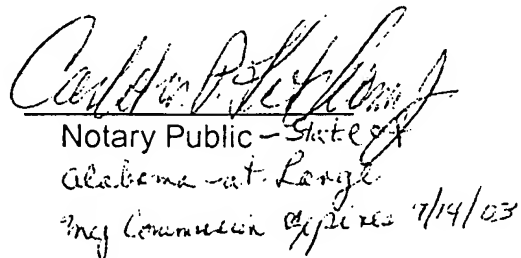 Notary Public - State of
Alabama - at - Large
My Commission Expires 7/14/03